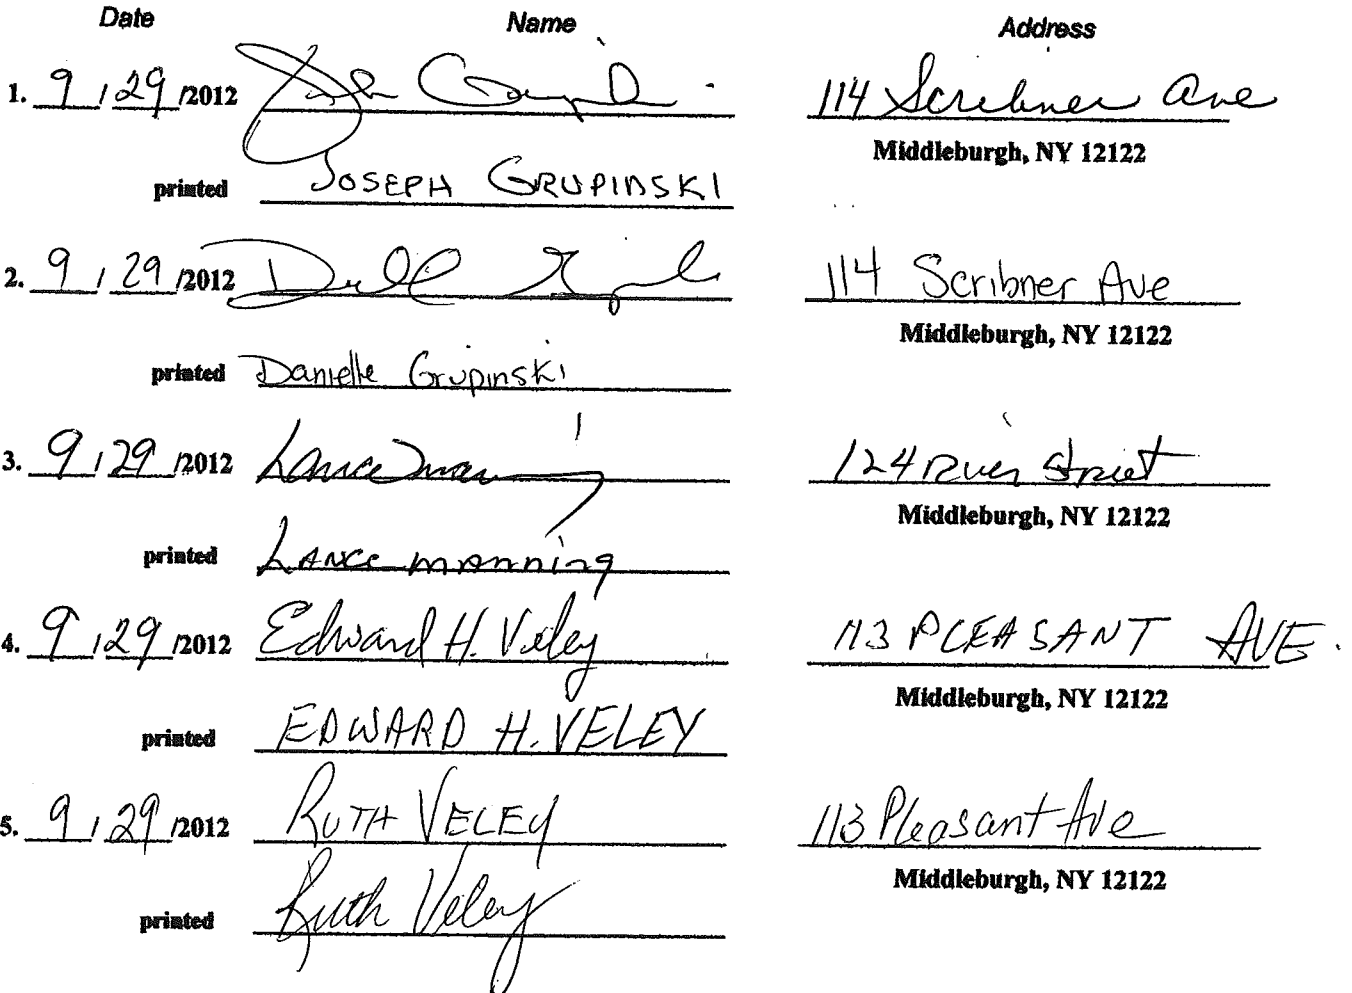 Date Name Address
1. 9 / 29 /2012 114 Scribner Ave
Middleburgh, NY 12122
printed JOSEPH GRUPINSKI
2. 9 / 29 /2012 114 Scribner Ave
Middleburgh, NY 12122
printed Danielle Grupinski
3. 9 / 29 /2012 Lance Manning 124 River Street
Middleburgh, NY 12122
printed Lance Manning
4. 9 / 29 /2012 Edward H. Veley 113 PLEASANT AVE.
Middleburgh, NY 12122
printed EDWARD H. VELEY
5. 9 / 29 /2012 RUTH VELEY 113 Pleasant Ave
Middleburgh, NY 12122
printed Ruth Veley